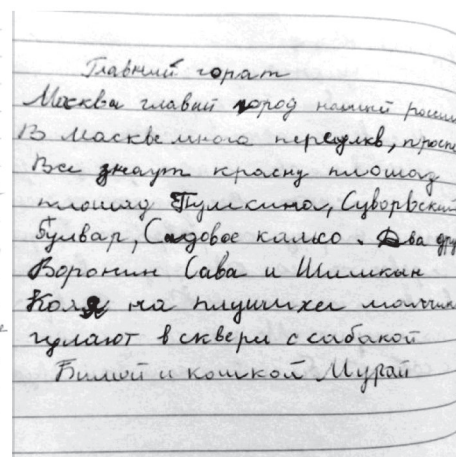 Главний горат
Москва главий город нашей россии
В маскве многа переулкв, проспе
Все знаут красну плошад
плошад Пушкина, Суворвский
Булвар, Садовое калсо. Два дру
Воронин Сава и Шишкын
Коля на плушихе малчик
гулают в сквери с сабакой
Бимой и кошкой Мурай